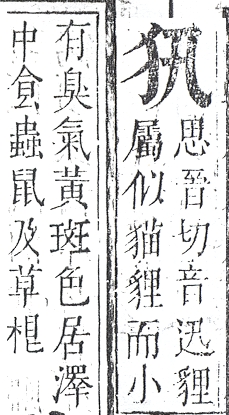 思晉切音迅貍
屬似貓貍而小
有臭氣黃斑色居澤
中食蟲鼠及草根